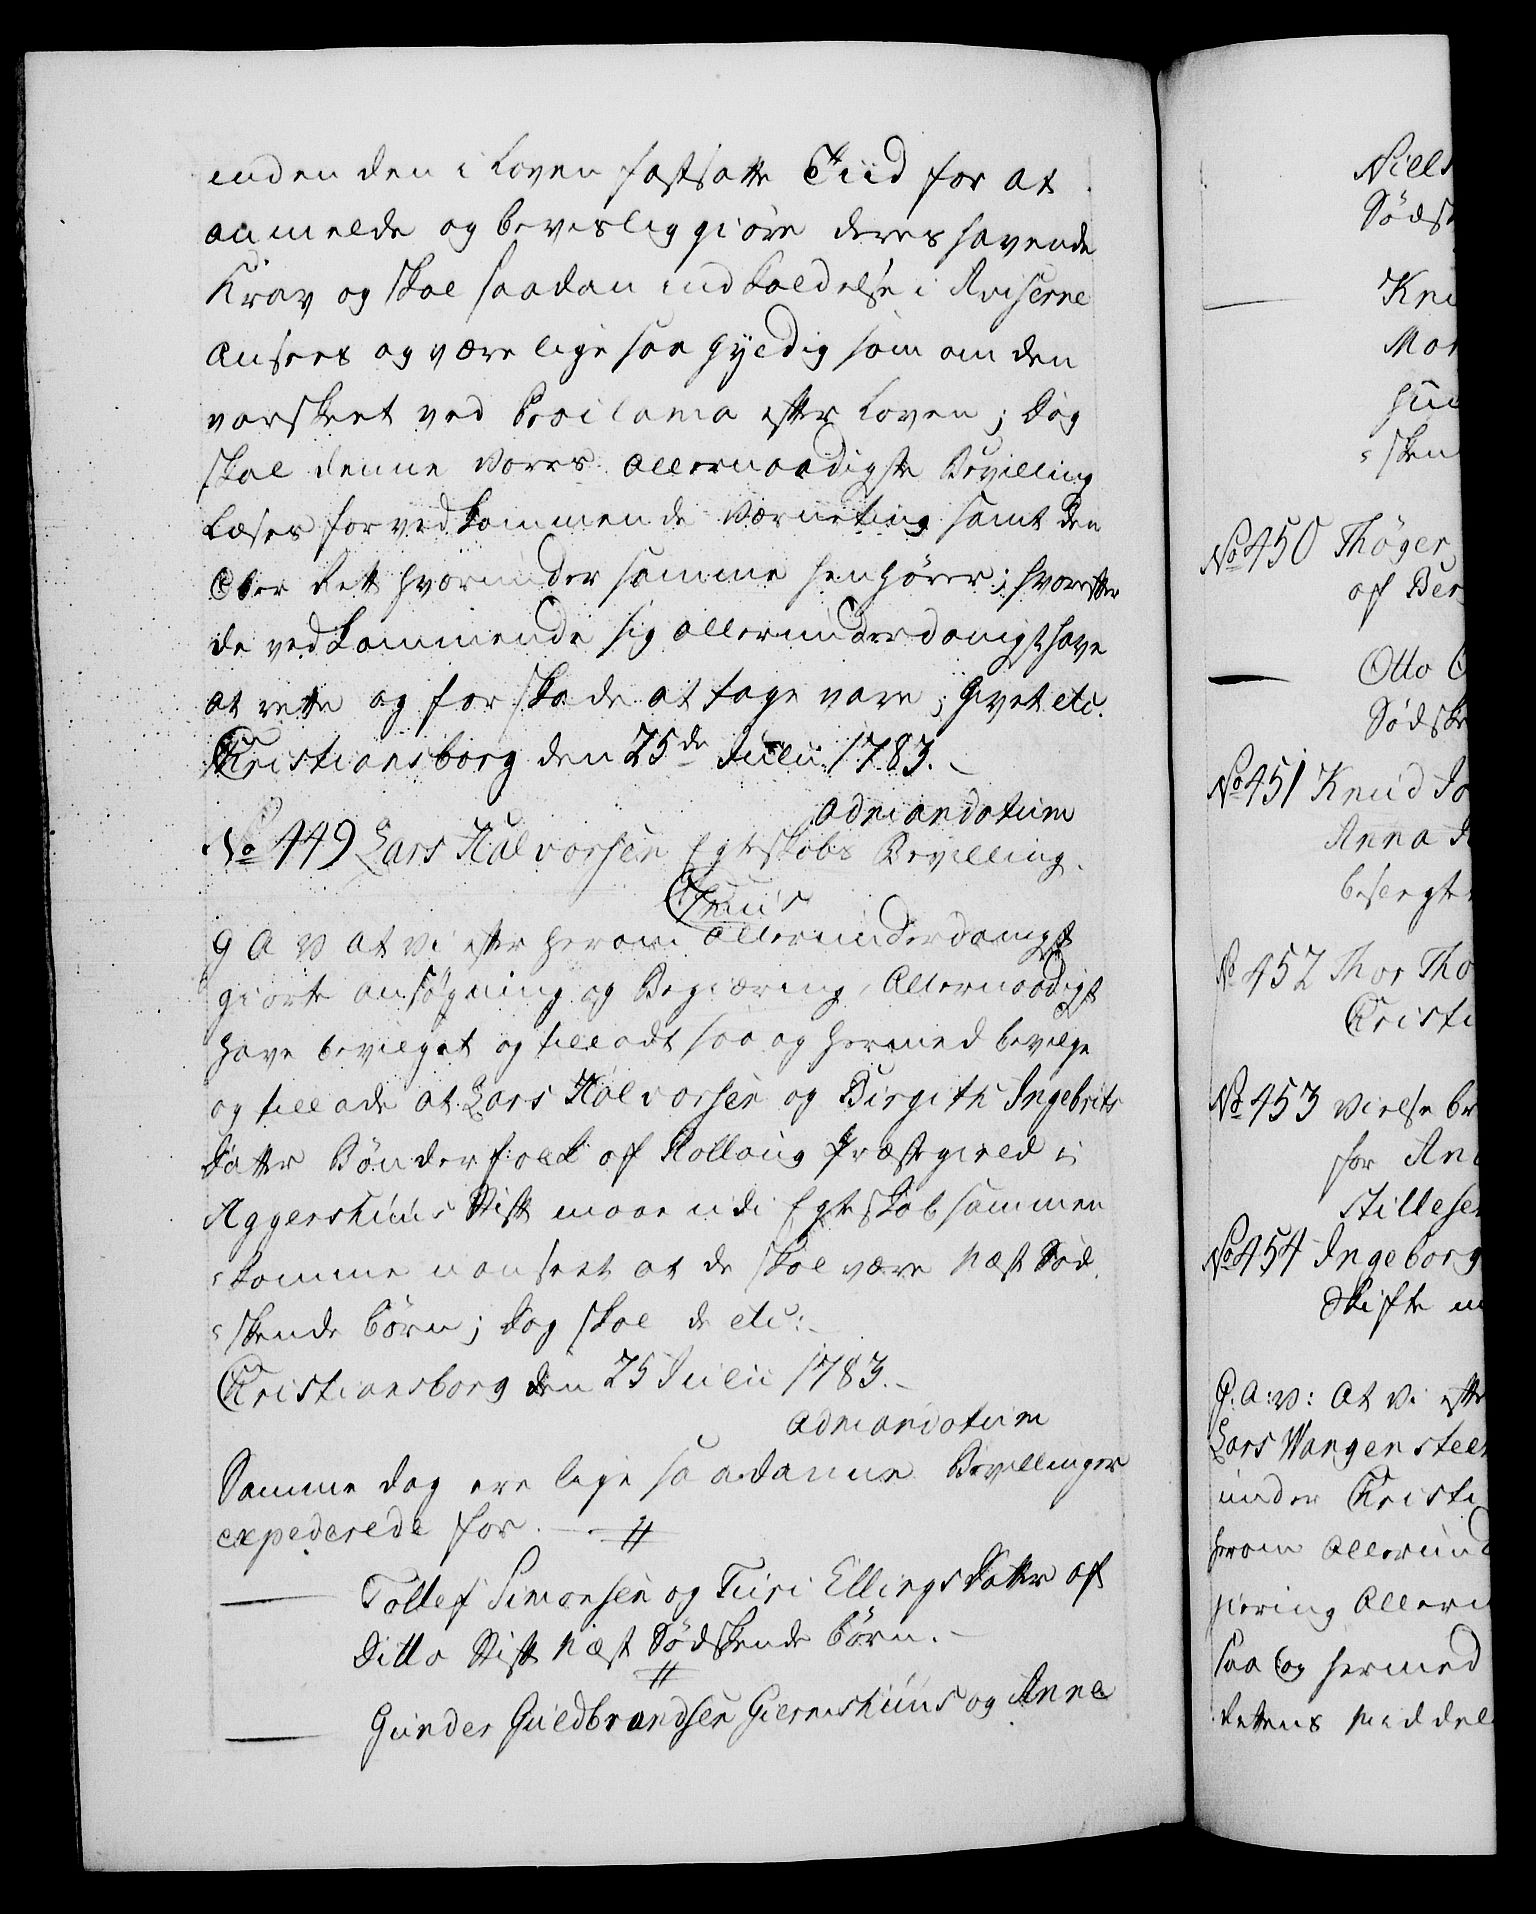 inden den i Loven fastsatte Tiid for at
anmelde og bevisliggiöre deres havende
Krav og skal saadan indkaldelse i Aviserne
ansees og være lige saa gyldig som om den
var skeet ved Proclama efter Loven; dog
skal denne Vores allernaadigste Bevilling
læses for vedkommende Værneting samt den
Over Rett hvorunder samme henhører; hvorefter
de vedkommende sig allerunderdanigst have
at rette og for skade at tage vare; Givet etc.
Christiansborg den 25de Julii 1783.
ad mandatum
No 449 Lars Halvorsen Egteskabs Bevilling.
Gratis
G A V at vi efter herom allerunderdanigst
giorte ansøgning og Begiæring, Allernaadigst
have bevilget og tilladt saa og hermed bevilge
og tillade at Lars Halvorsen og Birgith Ingebrits
datter Bønderfolk af Rollaug Præstegield i
Aggershuus Stift maae udi Egteskab sammen
komme uanseet at de skal være Næst Sød
skende börn; dog skal de etc:
Christiansborg den 25 Julii 1783.
ad mandatum
Samme dag ere lige saadanne Bevillinger
expederede for. #
Tollef Simonsen og Turi Ellingsdatter af
Ditto Stift Næst Sødskende börn.
#
Gunder Guldbrandsen Giernshuus og Anne
Niels
Södsk
Kni
Mor
huu
sken
No 450 Thöger
af Ber
Otto
Södske
No 451 Knud Jo
Anna
besvogte
No 452 Thor Tho
Christi
No 453 Vielse br
for And
Stillesen
No 454 Ingeborg
Skifte
G: A: V: at Vi efter
Lars Wangensteen
under Christi
herom allerund
giering Allern
saa og hermed
Rettens Middel